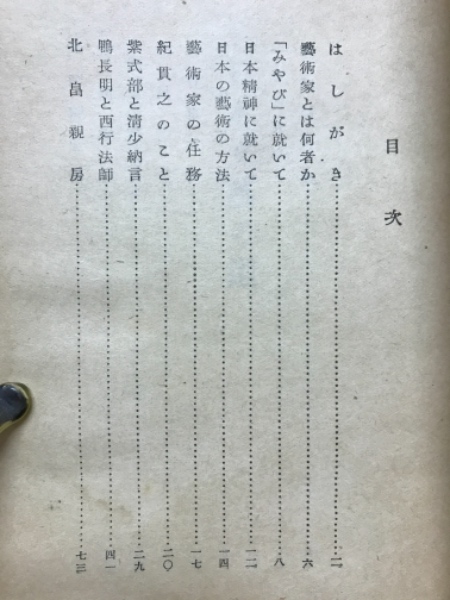 目次
はしがき……二
藝術家とは何者か……六
「みやび」に就いて……八
日本精神に就いて……一二
日本の藝術の方法……一四
藝術家の任務……一七
紀貫之のこと……二〇
紫式部と淸少納言……二九
鴨長明と西行法師……四一
北畠親房……七三